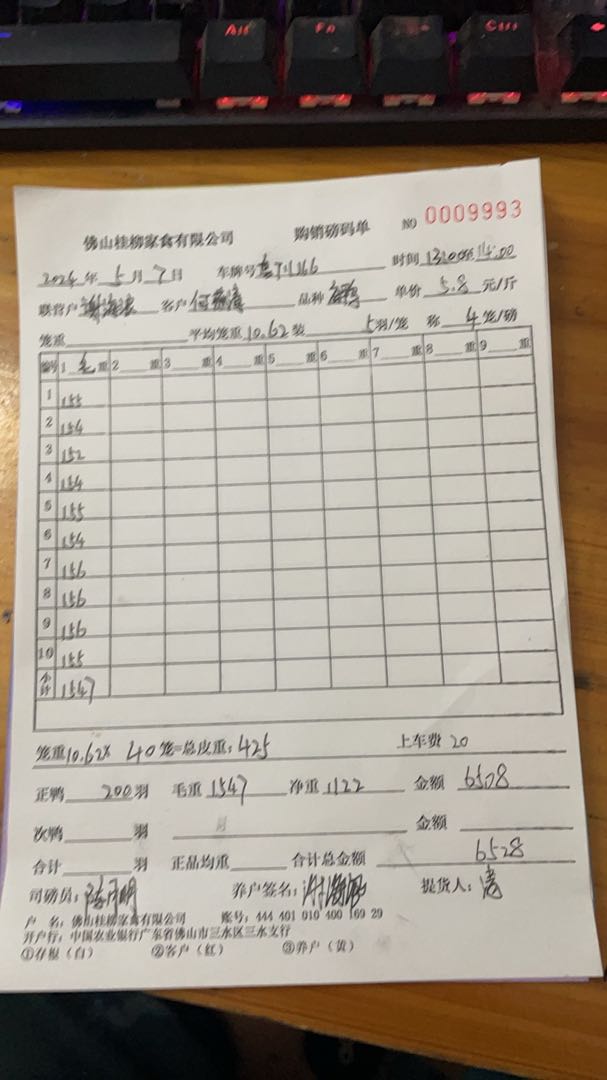 Alt Fn Ctrl
佛山桂柳家禽有限公司 购销磅码单 NO 0009993
2024年5月7日 车牌号 1166 时间 13:00至14:00
联营户 客户 品种 单价 5.8 元/斤
笼重 平均笼重10.62装 5羽/笼 称 4笼/磅
编号 1 毛重 2 重 3 重 4 重 5 重 6 重 7 重 8 重 9 重
1 155
2 154
3 152
4 154
5 155
6 154
7 156
8 156
9 156
10 155
小计 1547
笼重10.62× 40笼=总皮重:425 上车费 20
正鸭 200羽 毛重 1547 净重 1122 金额 6508
次鸭 羽 金额
合计 羽 正品均重 合计总金额 6528
司磅员: 养户签名: 提货人:
户 名:佛山桂柳家禽有限公司 账号:444 401 010 400 169 29
开户行:中国农业银行广东省佛山市三水区三水支行
①存根(白) ②客户(红) ③养户(黄)